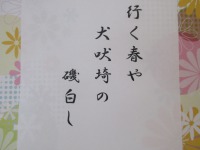 行く春や
犬吠埼の
磯白し